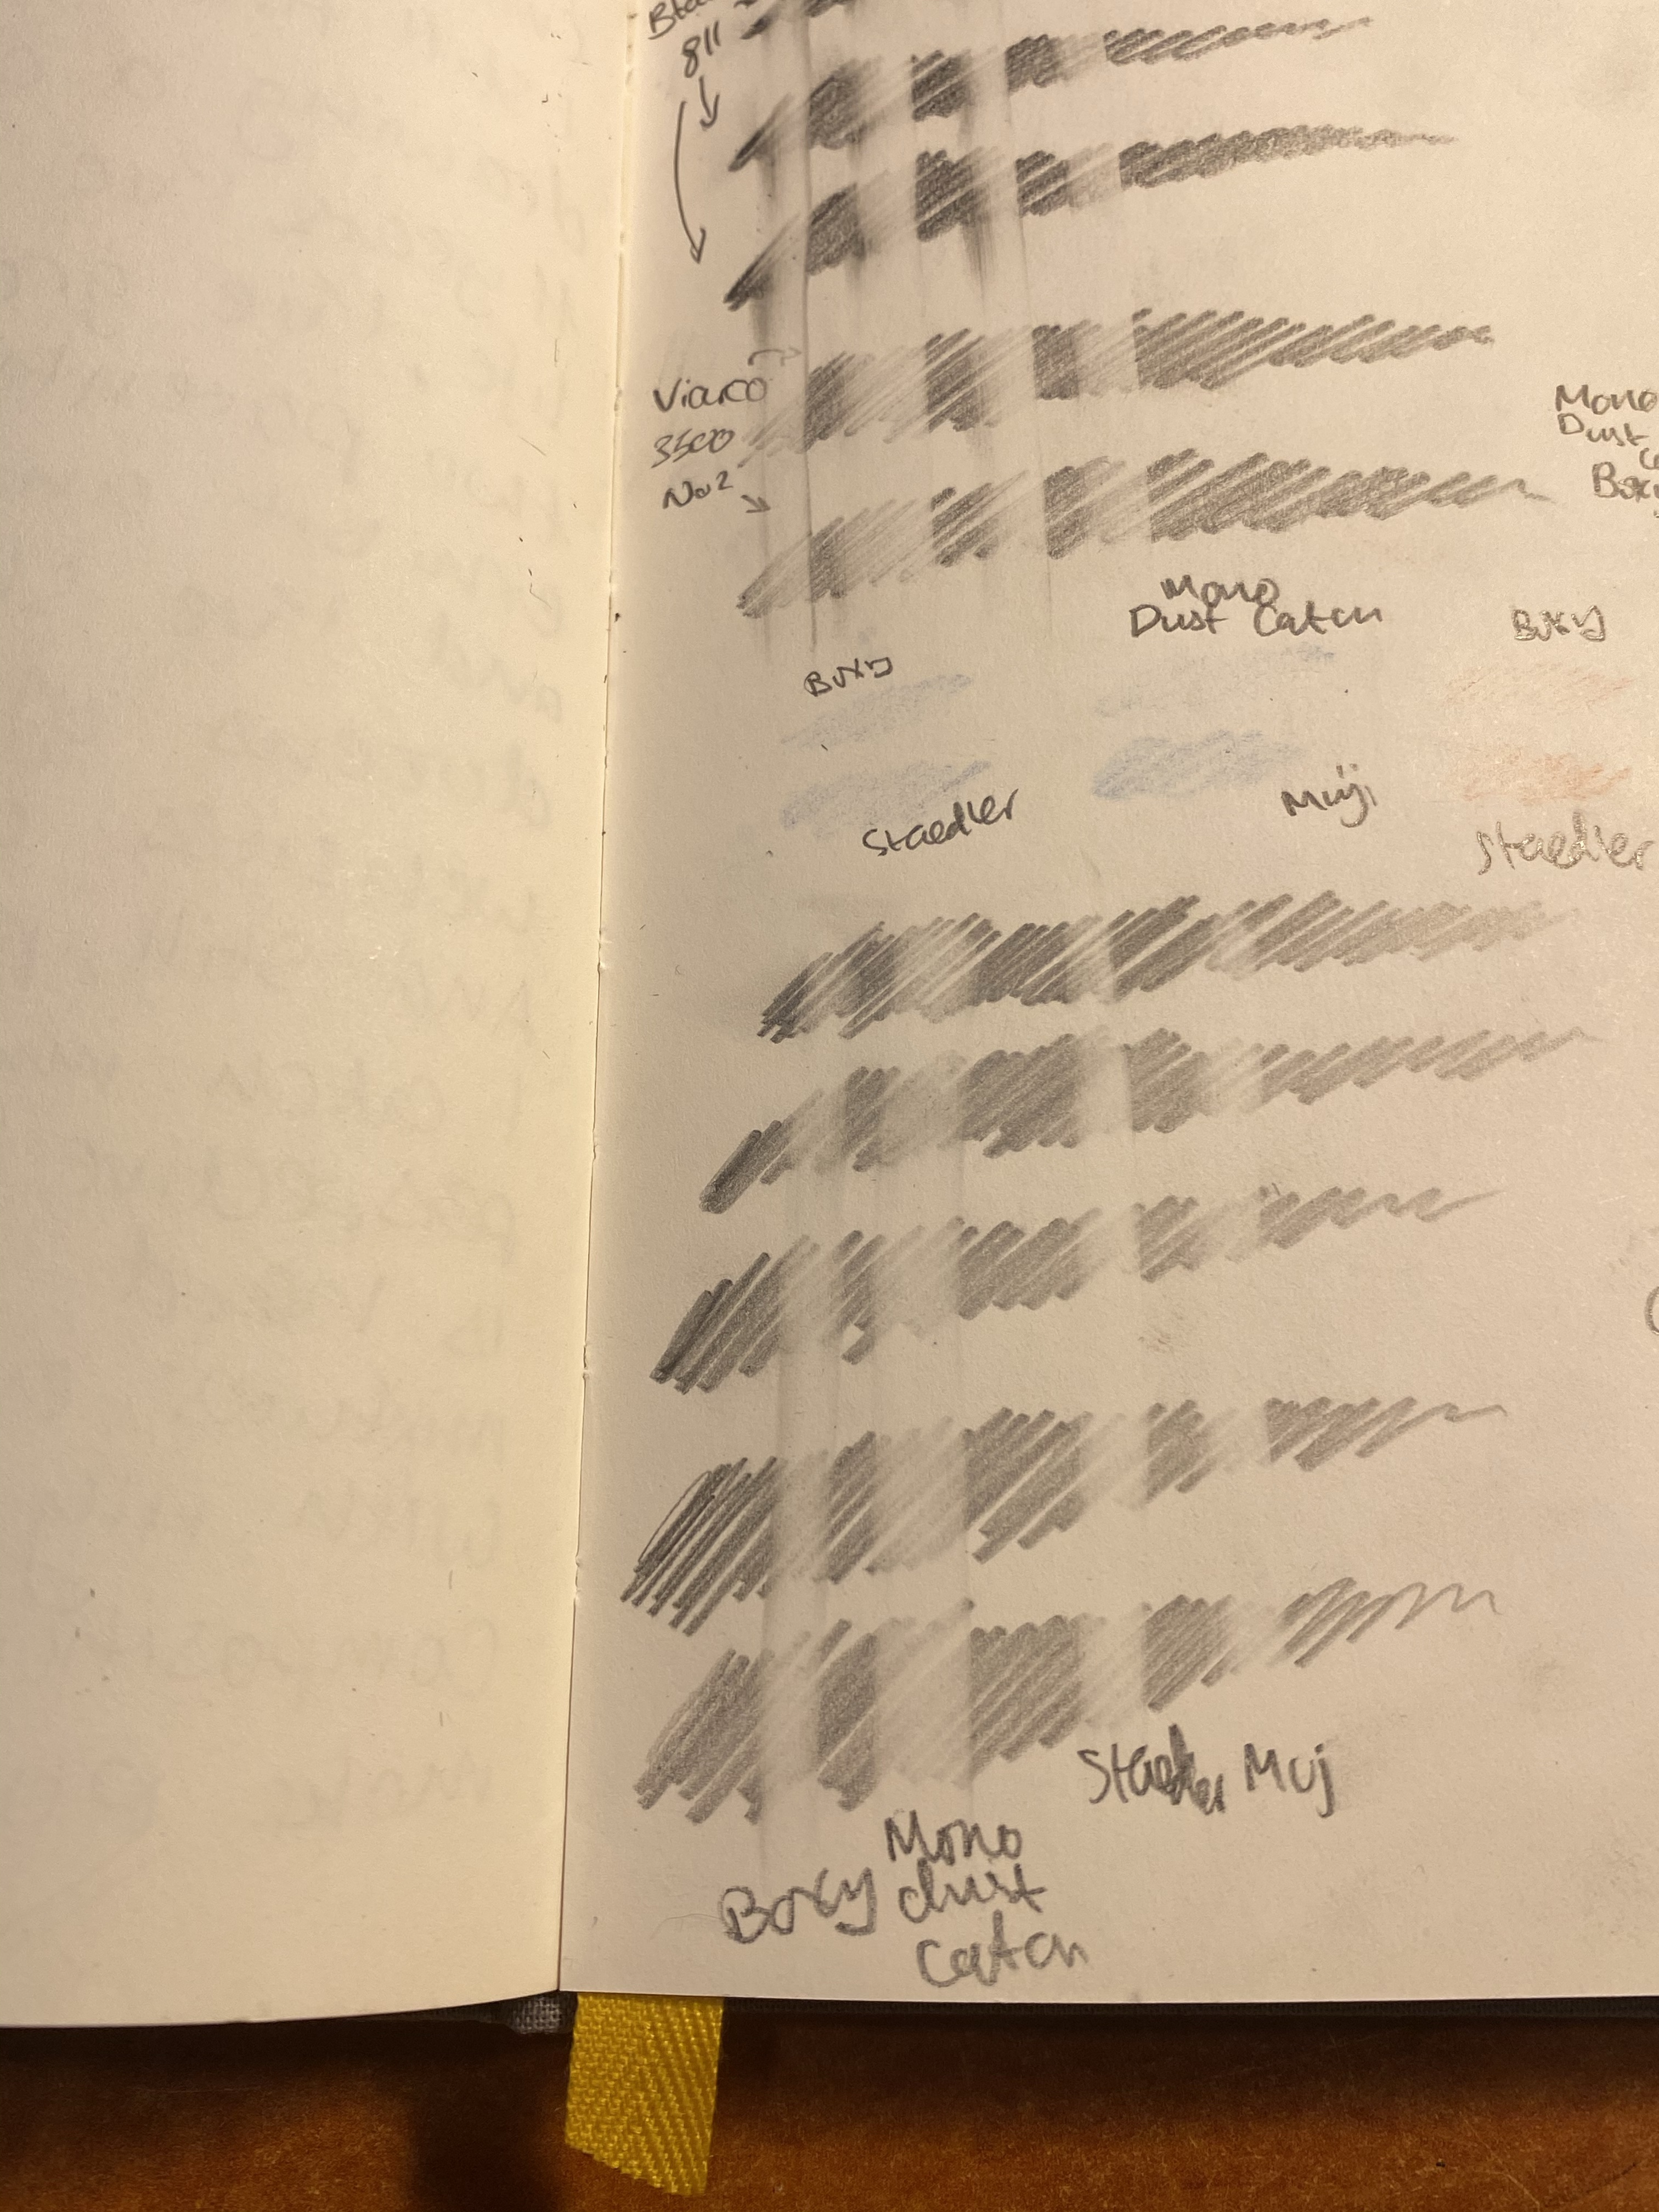 811
Viarco
3500
No 2
Mono
Dust
Boxy
Mono
Dust Catch
Boxy
Boxy
Staedler
Muji
Staedler
Staedler Muj
Mono
Boxy dust
catch